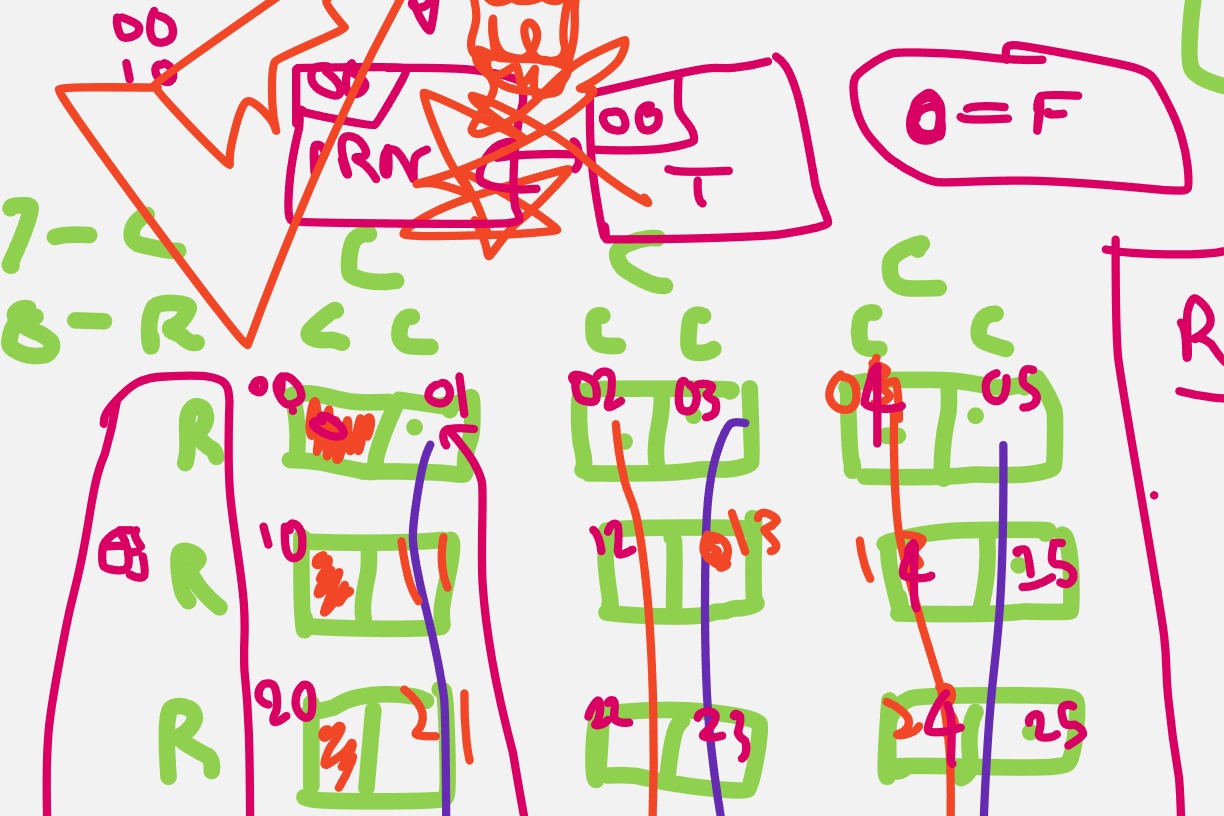 00
10
00
T
0 = F
7 - C
C
C
C
8 - R
C C
C C
C C
R
R
00 01
02 03
04 05
R
10 11
12 13
14 15
R
20 21
22 23
24 25